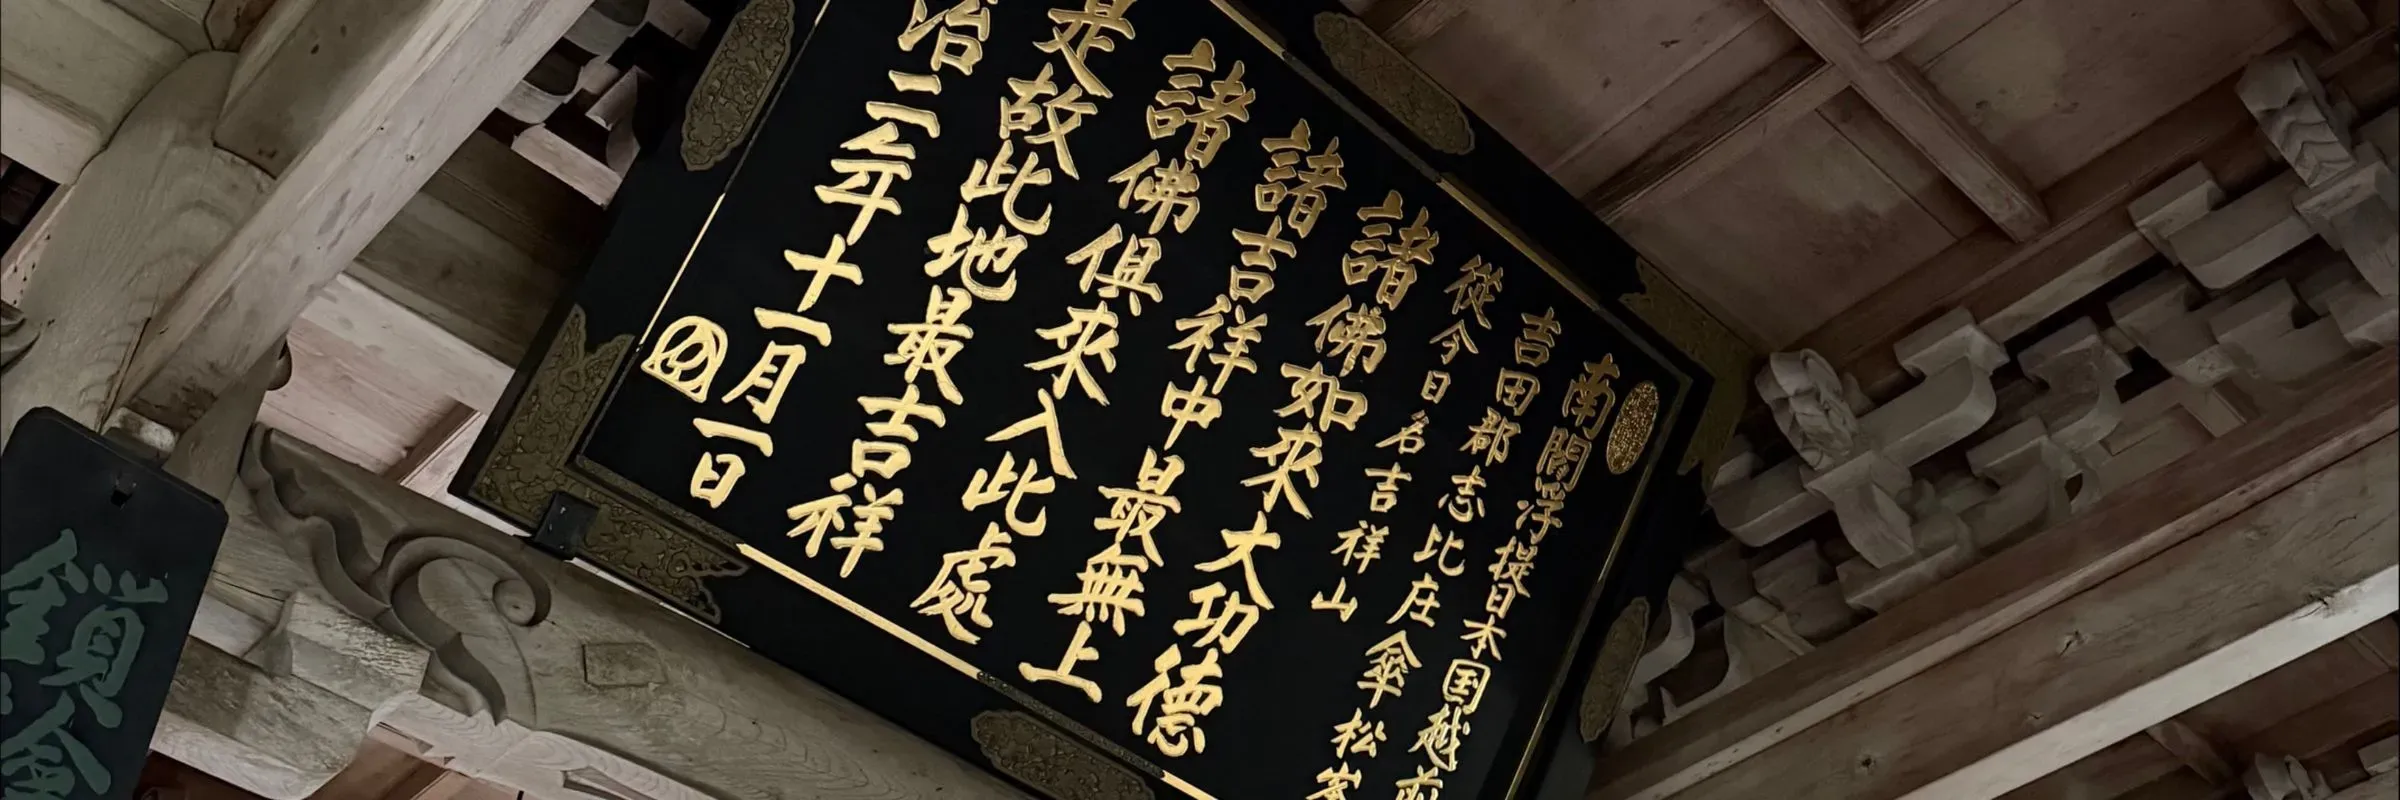 南閻浮提日本国越前
吉田郡志比庄傘松峯
從今日名吉祥山
諸佛如來大功德
諸吉祥中最無上
諸佛俱來入此處
是故此地最吉祥
治二年十一月一日
鎖